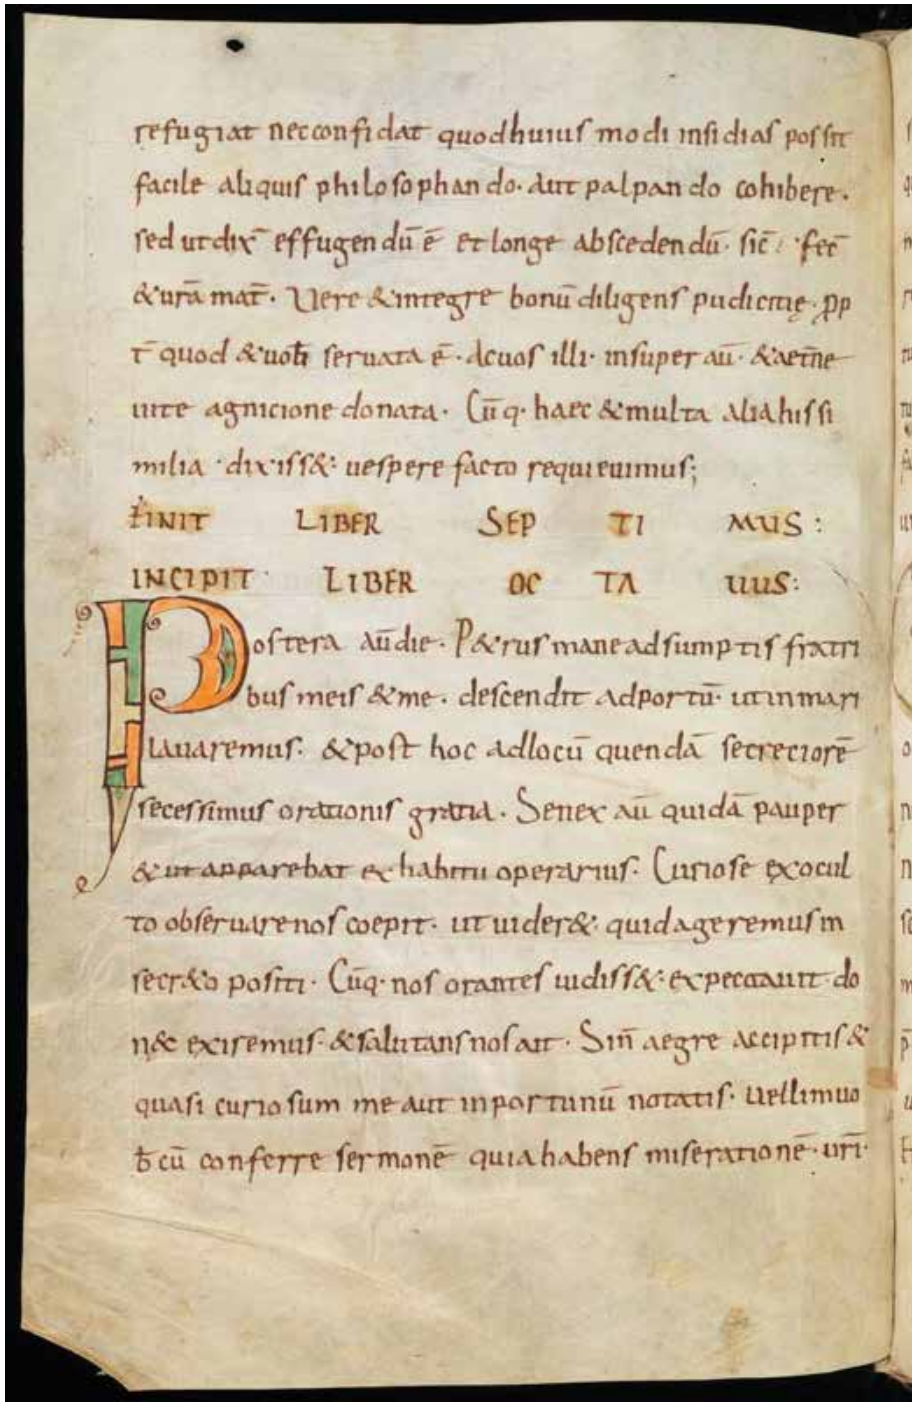 refugiat necconfidat quodhuius modi insidias possit
facile aliquis philosophan do· aut palpan do cohibere·
sed utdix̄ effugendū ē et longe abscedendū· sic̄ fec̄
&urā mat̄· Vere &integre bonū diligens pudicitię· ꝓp
t̄ quod &uob̄ seruata ē· Acuos illi· insuper aū· &aet̄ne
uite agnicione donata· Cūq· haec &multa aliahis si
milia· dixiss&· uespere facto requieuimus;
FINIT LIBER SEP TI MUS:
INCIPIT LIBER OC TA UUS:
Postera aūdie· P&rus maneadsumptis fratri
bus meis &me· descendit adportū· utinmari
lauaremus· &post hoc adlocū quendā secreciorē
secessimus orationis gratia· Senex aū quidā pauper
&ut apparebat exhabitu operarius· Curiose exocul
to obseruarenos coepit· ut uider&· quidageremus in
secr&o positi· Cūq· nos orantes uidiss&· expectauit do
n&c exiremus· &salutansnosait· Sin̄ aegre accipitis &
quasi curio sum me aut inportunū notatis· uellimuo
b̄ cū conferre sermonē quiahabens miserationē· uri̅·